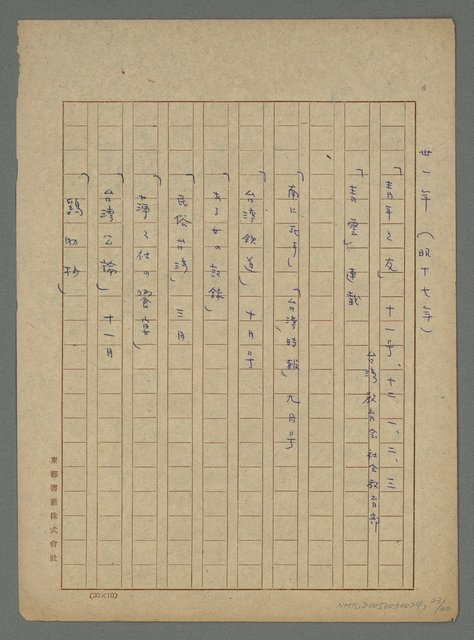 卅一年(昭十七年)
「青年之友」十一号、十二、一、二、三
台湾教育会社会教育部
「青雲」連載
「南に死す」「台湾時報」九月号
「台湾鉄道」十月号
「ある女の記録」
「民俗台湾」三月
「 社の饗宴」
「台湾公論」十一月
「鵝 」
東都書籍株式會社
(20×10)
NMTL20050030024, 22/30